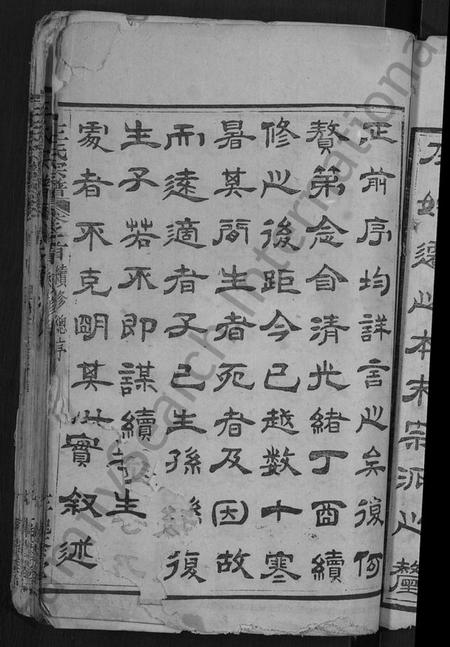 左始遷之本末宗派之釐
正前序均詳言之矣復何
贅第念自清光緒丁酉續
修之後距今已越數十寒
暑其間生者死者及因故
而遠適者子已生孫孫復
生子若不即謀續 生
處者不克明其 實敘述
王氏宗譜 卷之首 續修總序